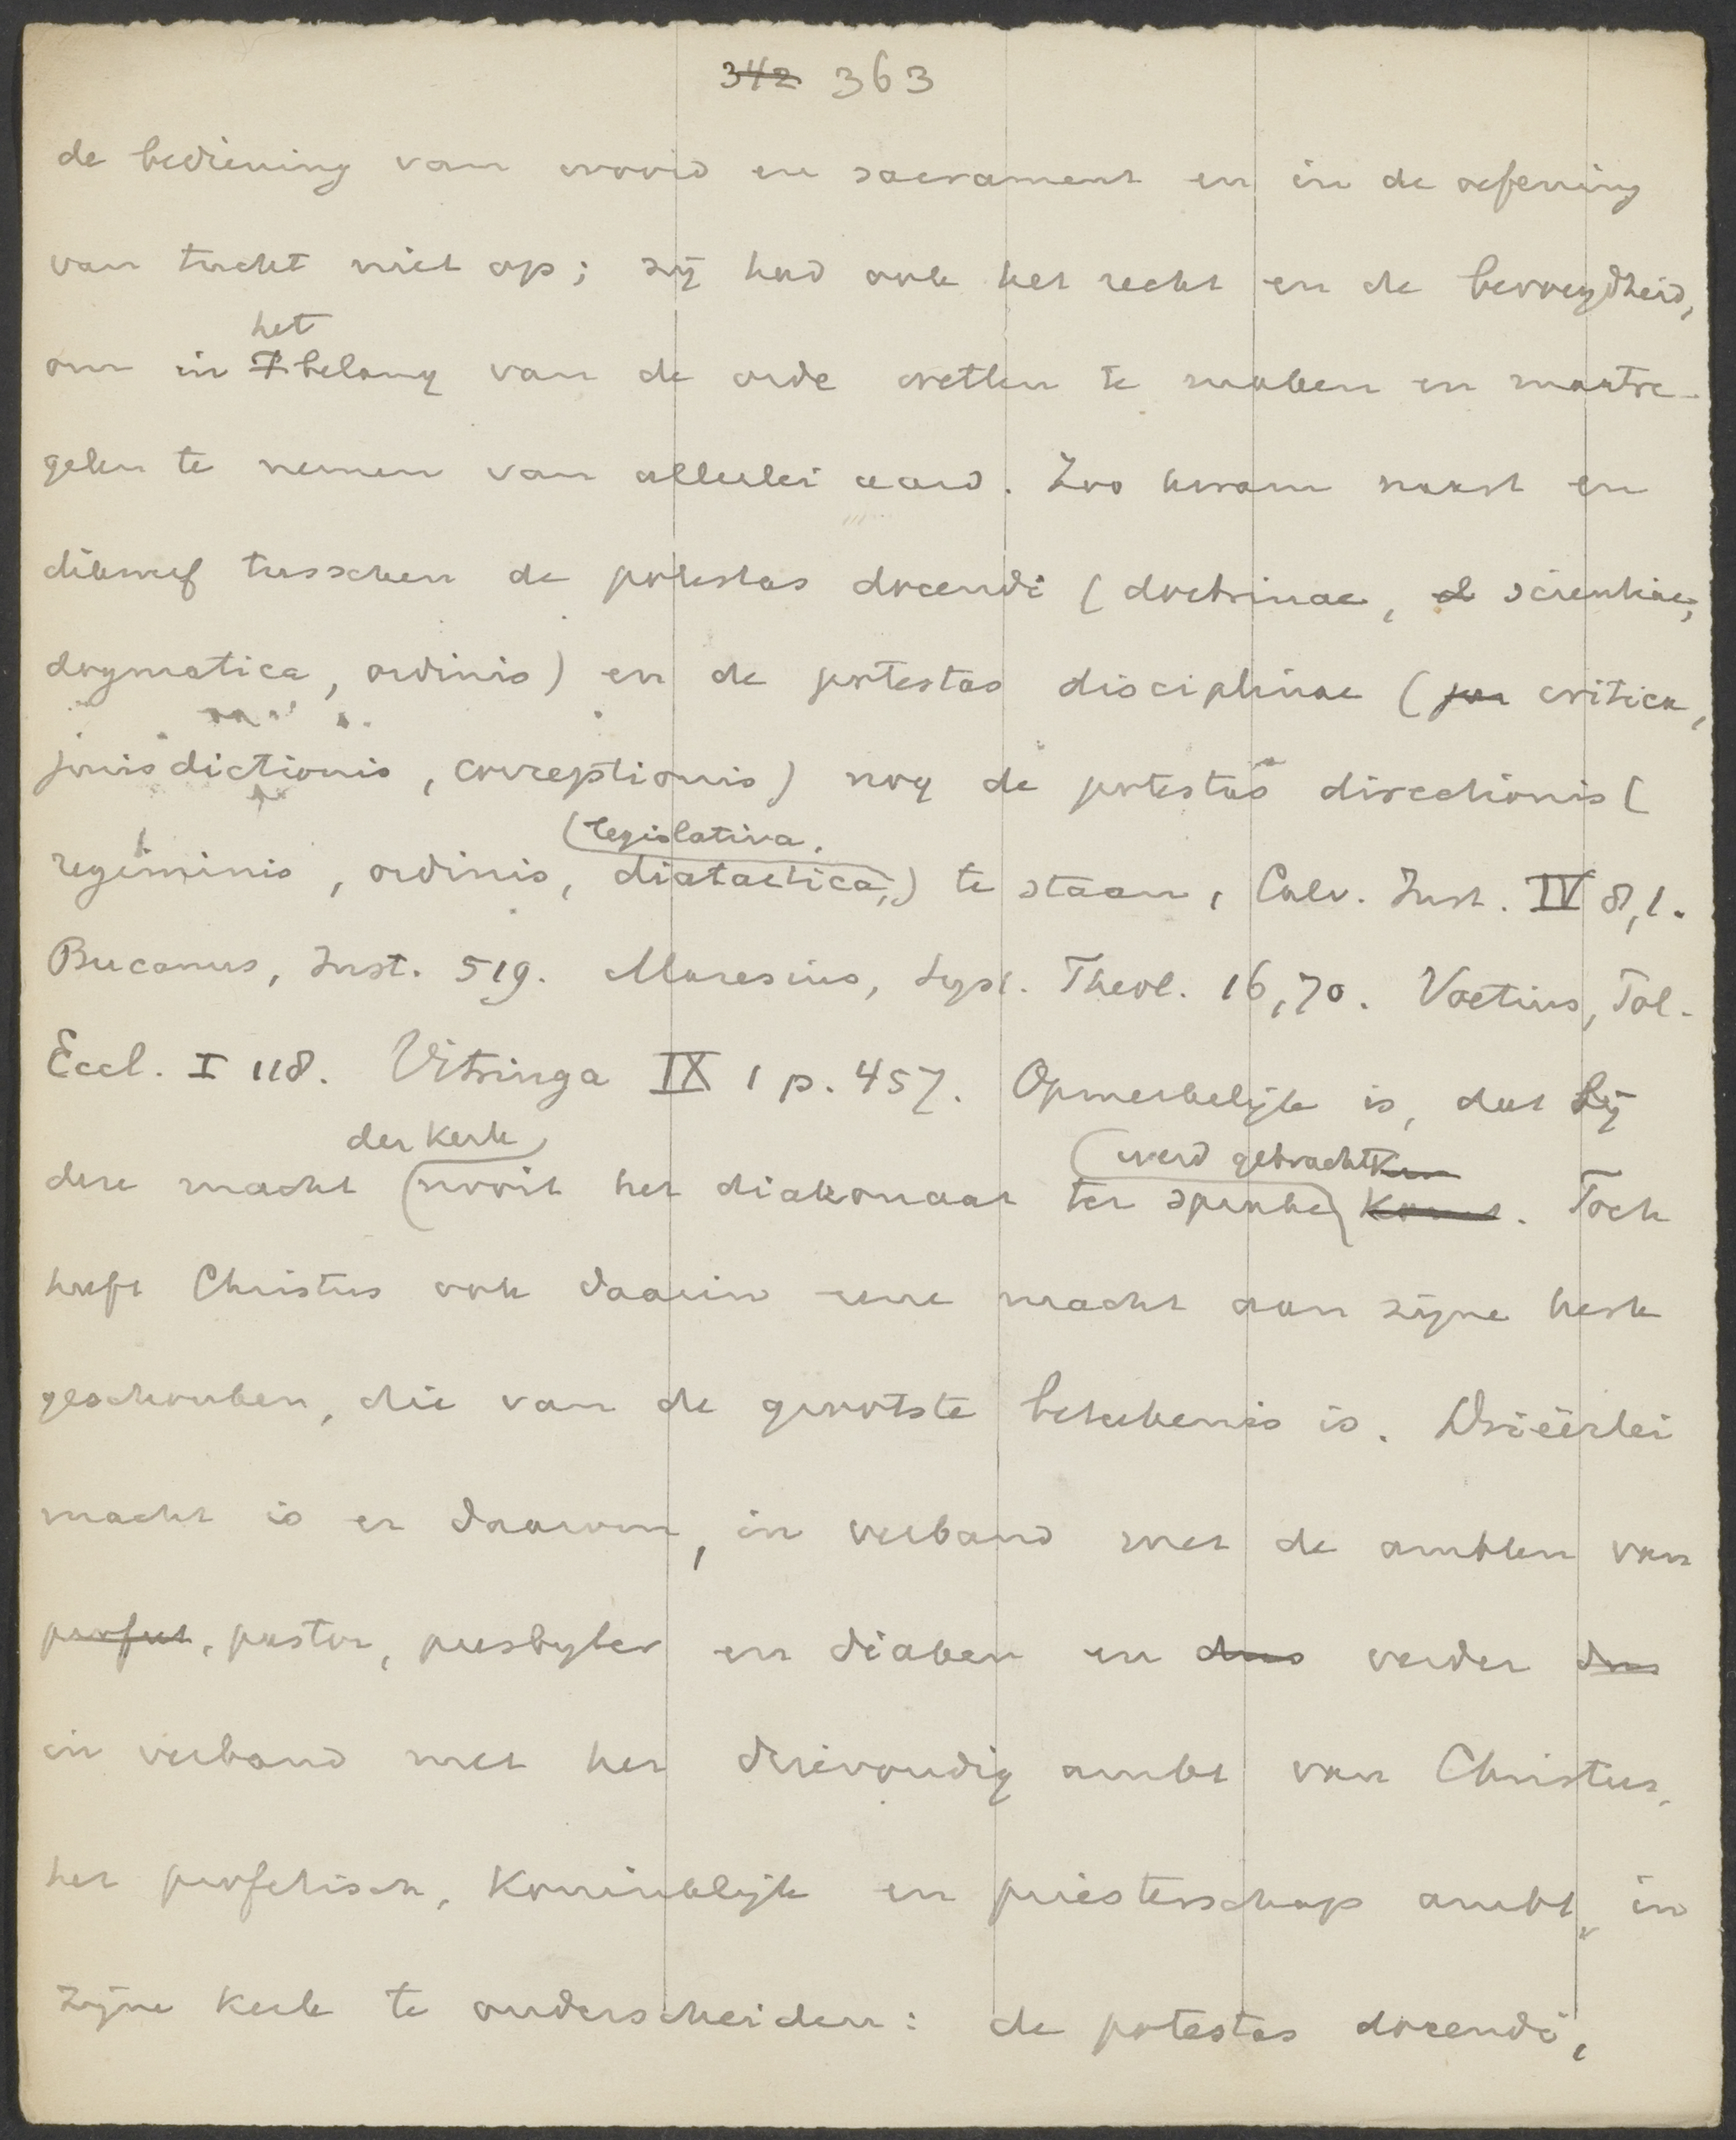 342 363
de bediening van woord en sacrament en in de oefening
van tucht niet op; zij had ook het recht en de bevoegdheid,
om in het belang van de orde wetten te maken en maatre-
gelen te nemen van allerlei aard. Zoo kwam naast en
dikwerf tusschen de potestas docendi (doctrinae, scientiae,
dogmatica, ordinis) en de potestas disciplinae (critica,
jurisdictionis, correptionis) nog de potestas directionis (
(legislativa,
regiminis, ordinis, diatactica,) te staan, Calv. Inst. IV 8,1.
Bucanus, Inst. 519. Maresius, Syst. Theol. 16,70. Voetius, Pol.
Eccl. I 118. Vitringa IX 1 p. 457. Opmerkelijk is, dat bij
der kerk werd gebracht
deze macht nooit het diakonaat ter sprake komt. Toch
heeft Christus ook daarin eene macht aan zijne kerk
geschonken, die van de grootste beteekenis is. Drieërlei
macht is er daarom, in verband met de ambten van
profeet, pastor, presbyter en diaken en dus verder dus
in verband met het drievoudig ambt van Christus,
het profetisch, koninklijk en priesterschap ambt, in
zijne kerk te onderscheiden: de potestas docendi,